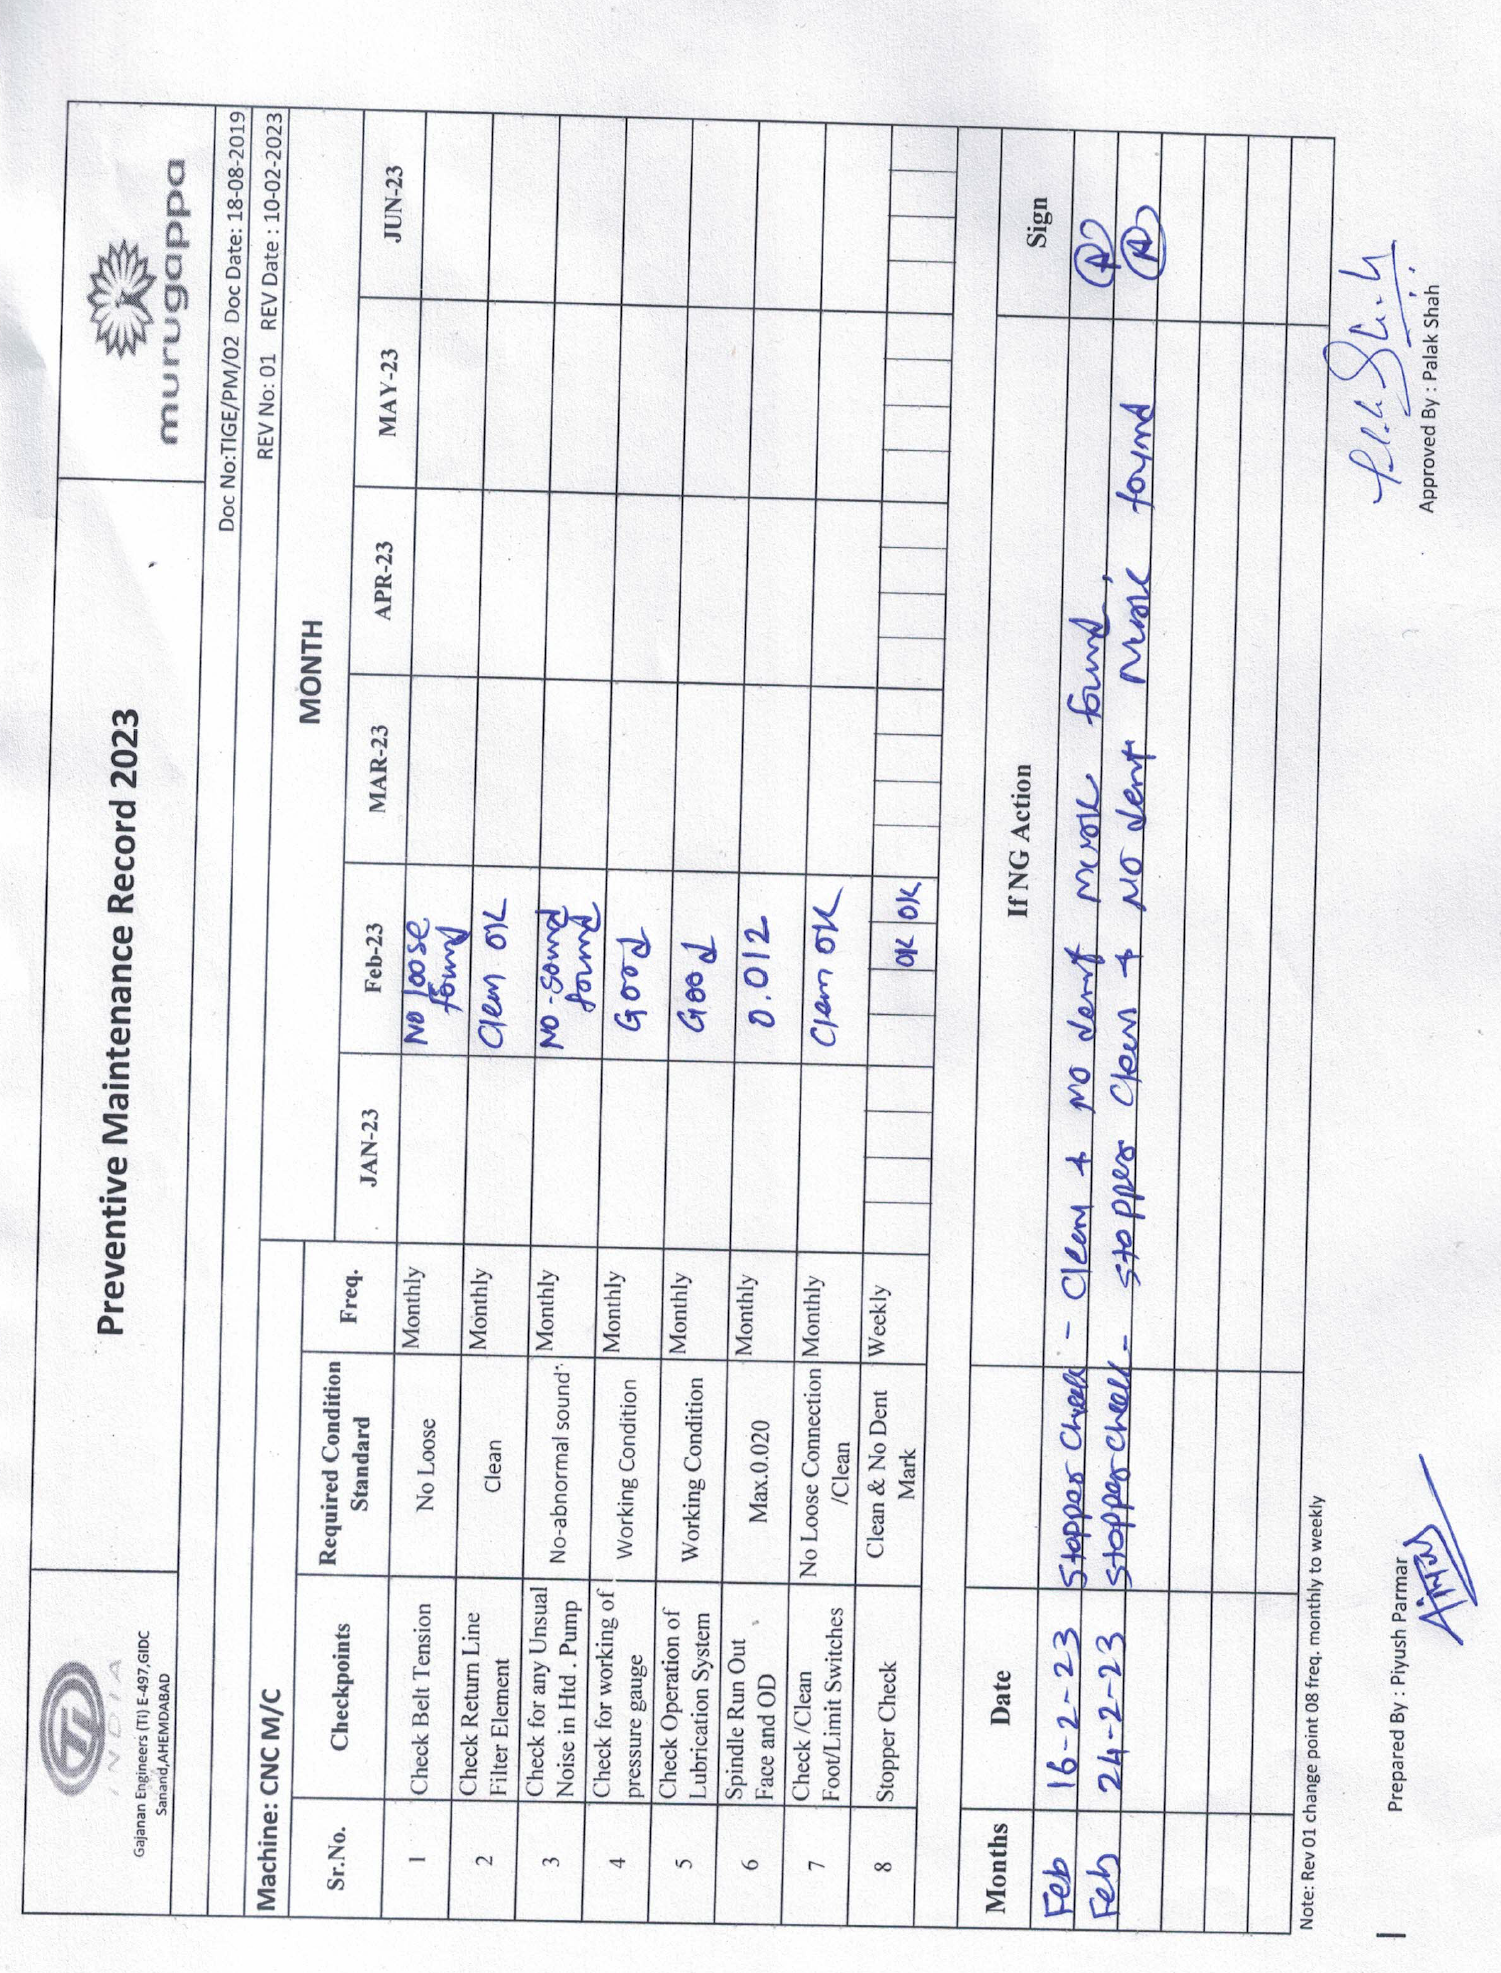 TI
INDIA
Gajanan Engineers (TI) E-497,GIDC
Sanand,AHEMDABAD
Preventive Maintenance Record 2023
murugappa
Doc No:TIGE/PM/02 Doc Date: 18-08-2019
REV No: 01 REV Date : 10-02-2023
Machine: CNC M/C
MONTH
Sr.No. Checkpoints Required Condition Standard Freq. JAN-23 Feb-23 MAR-23 APR-23 MAY-23 JUN-23
1 Check Belt Tension No Loose Monthly No loose found
2 Check Return Line Filter Element Clean Monthly Clean OK
3 Check for any Unusual Noise in Htd . Pump No-abnormal sound Monthly No-sound found
4 Check for working of pressure gauge Working Condition Monthly Good
5 Check Operation of Lubrication System Working Condition Monthly Good
6 Spindle Run Out Face and OD Max.0.020 Monthly 0.012
7 Check /Clean Foot/Limit Switches No Loose Connection /Clean Monthly Clean OK
8 Stopper Check Clean & No Dent Mark Weekly OK OK
Months Date If NG Action Sign
Feb 16-2-23 Stopper Check - Clean + no dent mark found
Feb 24-2-23 Stopper Check - Stopper Clean + no dent mark found
Note: Rev 01 change point 08 freq. monthly to weekly
Prepared By : Piyush Parmar
Approved By : Palak Shah